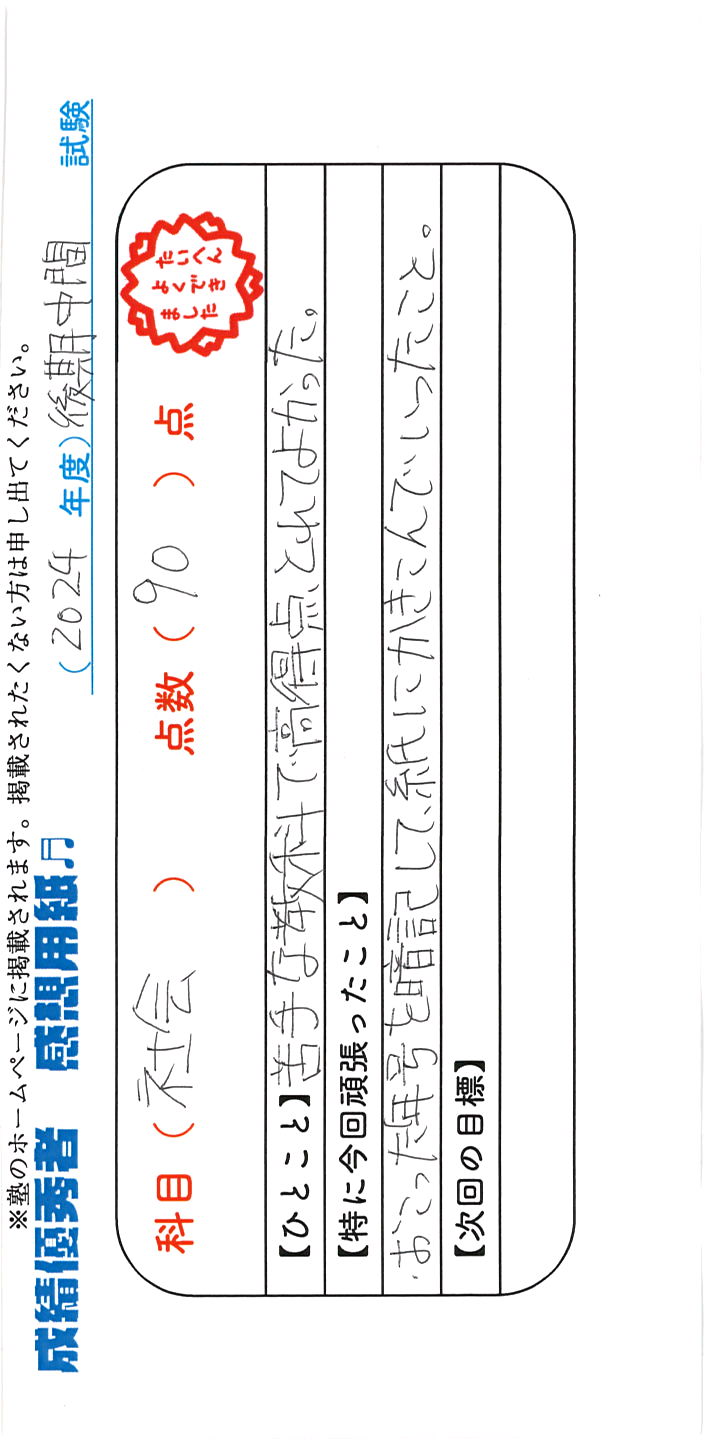 ※塾のホームページに掲載されます。掲載されたくない方は申し出てください。
成績優秀者 感想用紙♬ (2024 年度)後期中間 試験
科目(社会) 点数(90)点
たいへん
よくでき
ました
【ひとこと】苦手な教科で最高点とれてよかった。
【特に今回頑張ったこと】
・おこった年号も暗記して紙にかきこんでいったこと。
【次回の目標】